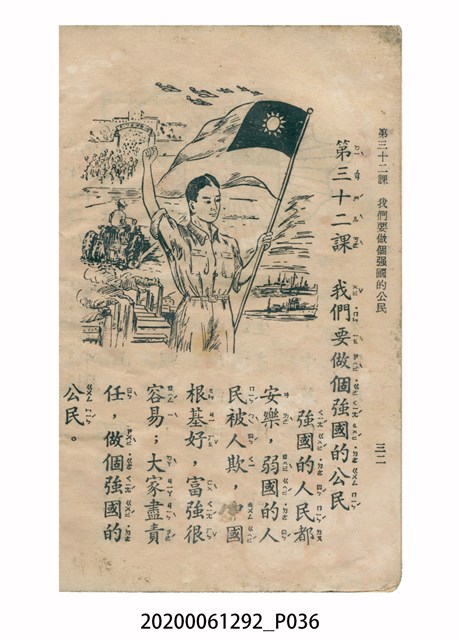 第三十二課　我們要做個强國的公民
三二
第三十二課　我們要做個強國的公民
強國的人民都
安樂，弱國的人
民被人欺，國
根基好，富強很
容易；大家盡責
任，做個強國的
公民。
20200061292_P036